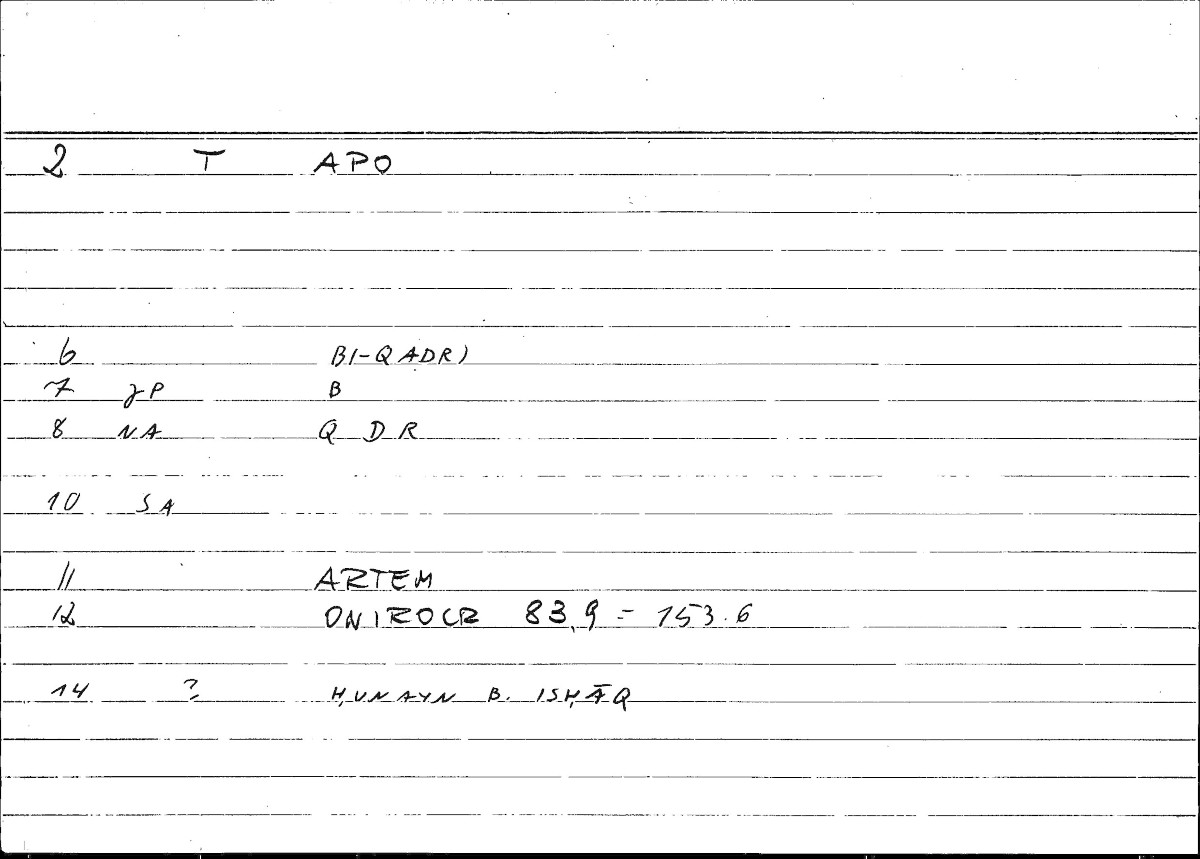 2 T APO
6 BI-QADRI
7 JP B
8 NA Q D R
10 SA
11 ARTEM
12 ONIROCR 83,9 = 153.6
14 ? ḤUNAYN B. ISḤĀQ